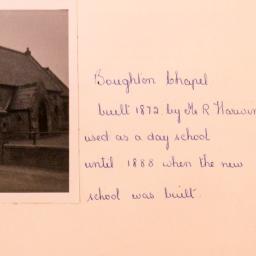 Boughton Chapel
built 1872 by Mr R
used as a day school
until 1888 when the new
school was built.